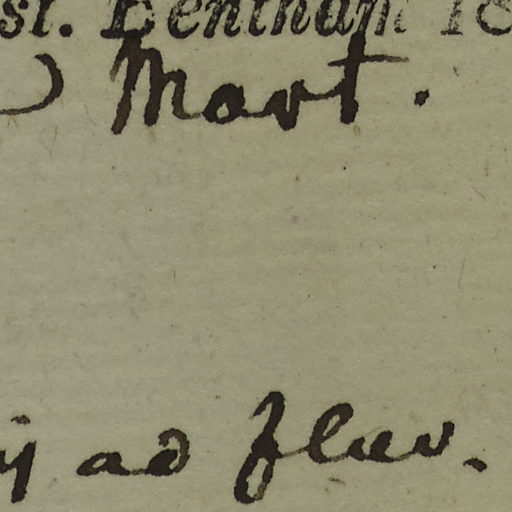 st. Bentham 18
) Mart.
ij ad fluv.